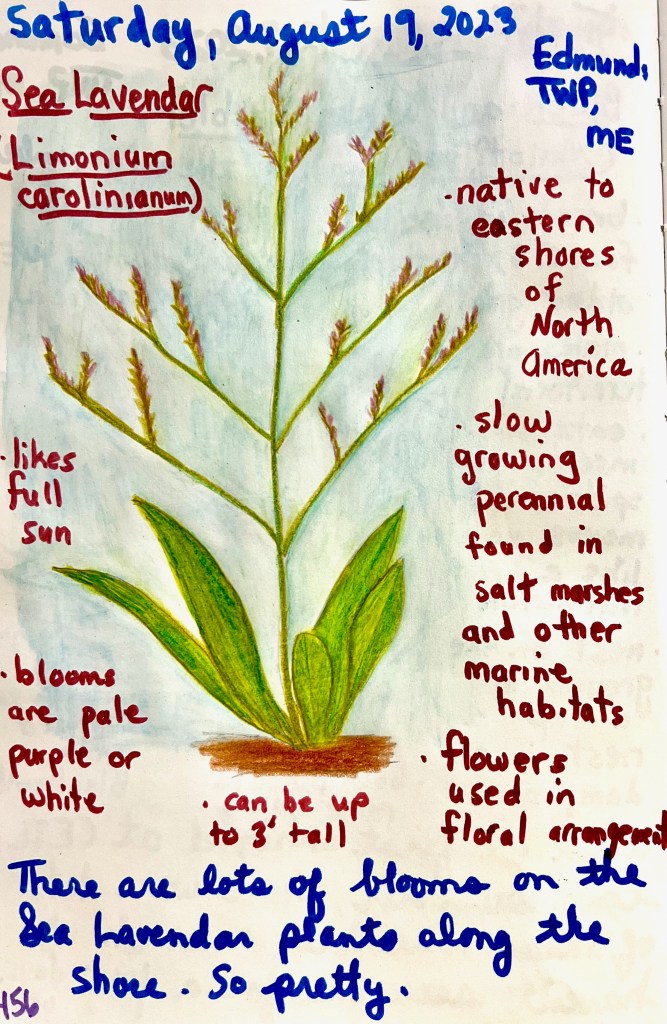 Saturday, August 19, 2023
Edmunds
TWP,
ME
Sea Lavendar
(Limonium
carolinianum)
· native to
eastern
shores
of
North
America
· slow
growing
perennial
found in
salt marshes
and other
marine
habitats
· likes
full
sun
· blooms
are pale
purple or
white
· can be up
to 3' tall
· flowers
used in
floral arrangement
There are lots of blooms on the
Sea Lavendar plants along the
shore. So pretty.
156